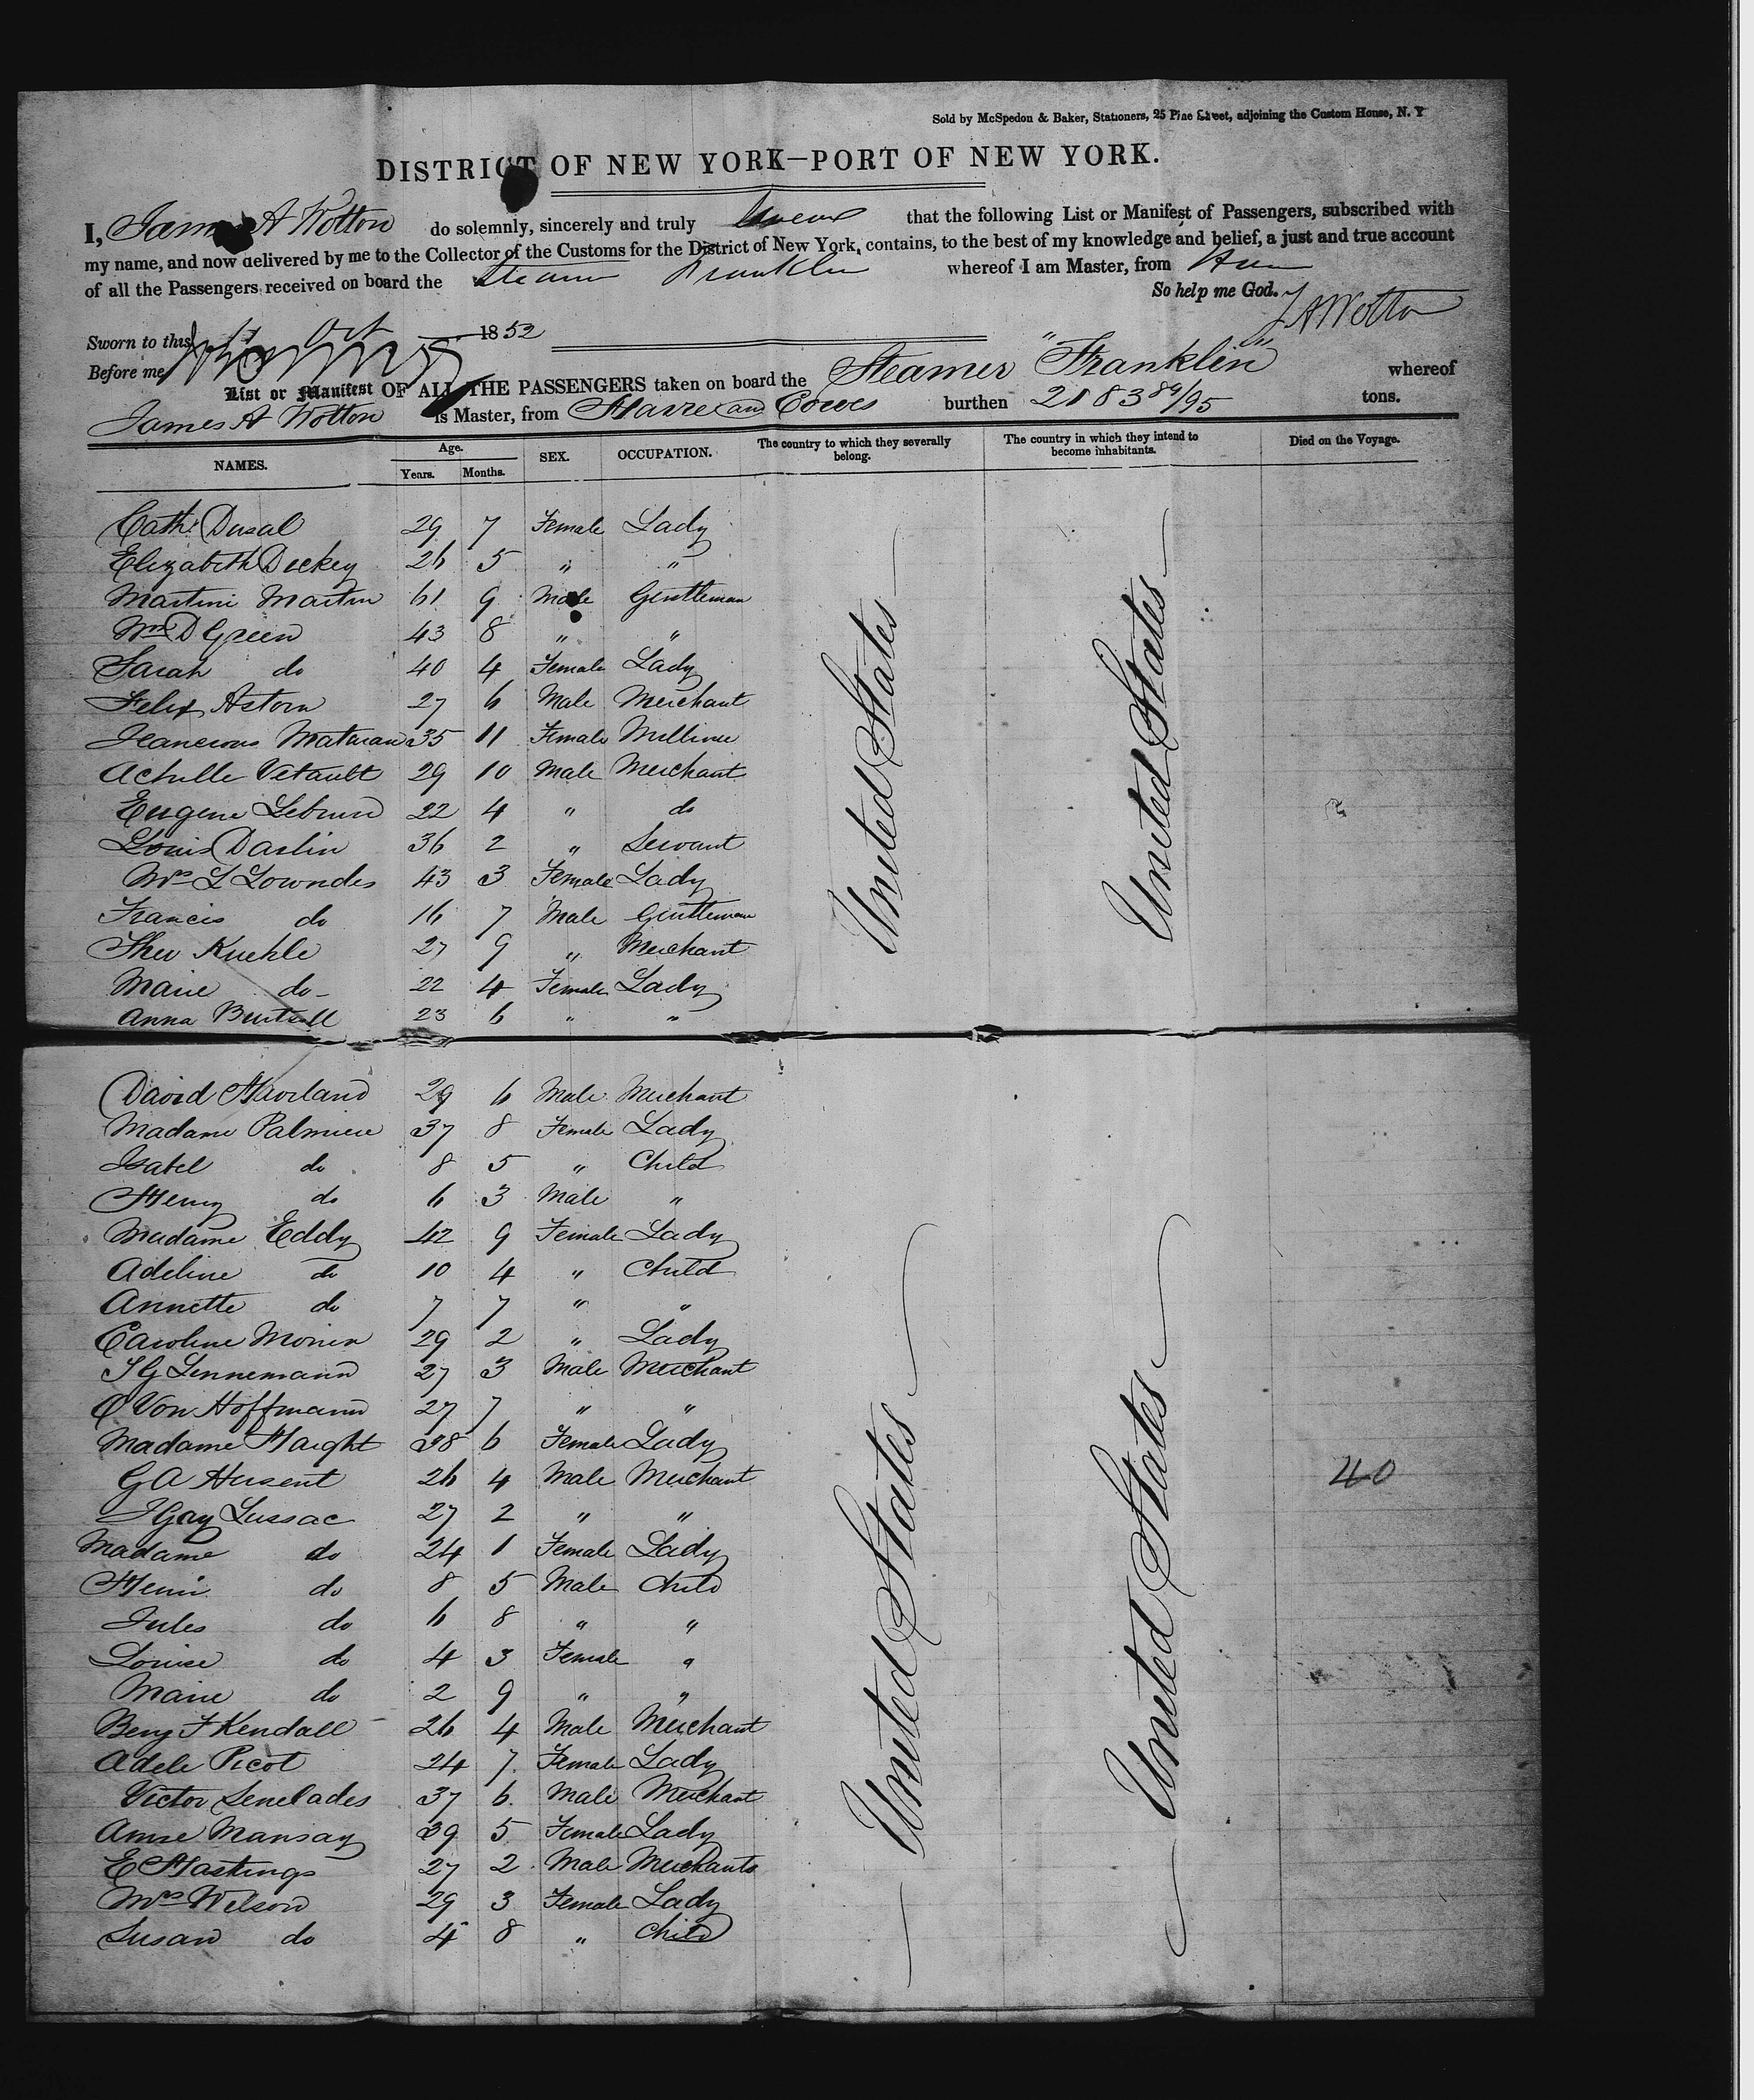 Sold by McSpedon & Baker, Stationers, 25 Pine Street, adjoining the Custom House, N. Y
DISTRICT OF NEW YORK—PORT OF NEW YORK.
I, James A Wotton do solemnly, sincerely and truly swear that the following List or Manifest of Passengers, subscribed with
my name, and now delivered by me to the Collector of the Customs for the District of New York, contains, to the best of my knowledge and belief, a just and true account
of all the Passengers received on board the Steamer Franklin whereof I am Master, from
So help me God.
J A Wotton
Sworn to this Oct 1852
Before me
List or Manifest OF ALL THE PASSENGERS taken on board the Steamer "Franklin" whereof
James A Wotton is Master, from Havre and Cowes burthen 2183 89/95 tons.
NAMES. Age. Years. Months. SEX. OCCUPATION. The country to which they severally belong. The country in which they intend to become inhabitants. Died on the Voyage.
Cath Dusal 29 7 Female Lady
Elizabeth Deckey 26 5 " "
Martini Martin 61 9 Male Gentleman
Wm D Green 43 8 " "
Sarah do 40 4 Female Lady
Felix Astoin 27 6 Male Merchant
35 11 Female Milliner
Achille Vetault 29 10 Male Merchant
Eugene Lebrun 22 4 " do
Louis Darlin 36 2 " Servant
Mrs L Lowndes 43 3 Female Lady
Francis do 16 7 Male Gentleman
Theo Kuehle 27 9 " Merchant
Marie do 22 4 Female Lady
Anna 23 6 " "
United States
United States
David Haviland 29 6 Male Merchant
Madame Palmiere 37 8 Female Lady
Isabel do 8 5 " Child
Henry do 6 3 Male "
Madame Eddy 42 9 Female Lady
Adeline do 10 4 " Child
Annette do 7 7 " "
Caroline Monin 29 2 " Lady
J G Lennemann 27 3 Male Merchant
C Von Hoffmann 27 7 " "
Madame Haight 38 6 Female Lady
G A Hersent 26 4 Male Merchant
J Gay Lussac 27 2 " "
Madame do 24 1 Female Lady
Henri do 8 5 Male Child
Jules do 6 8 " "
Louise do 4 3 Female "
Marie do 2 9 " "
Benj F Kendall 26 4 Male Merchant
Adele Picot 24 7 Female Lady
Victor Lenelades 37 6 Male Merchant
Amse Mansay 39 5 Female Lady
E Hastings 27 2 Male Merchants
Mrs Wilson 29 3 Female Lady
Susan do 4 8 " Child
United States
United States
40